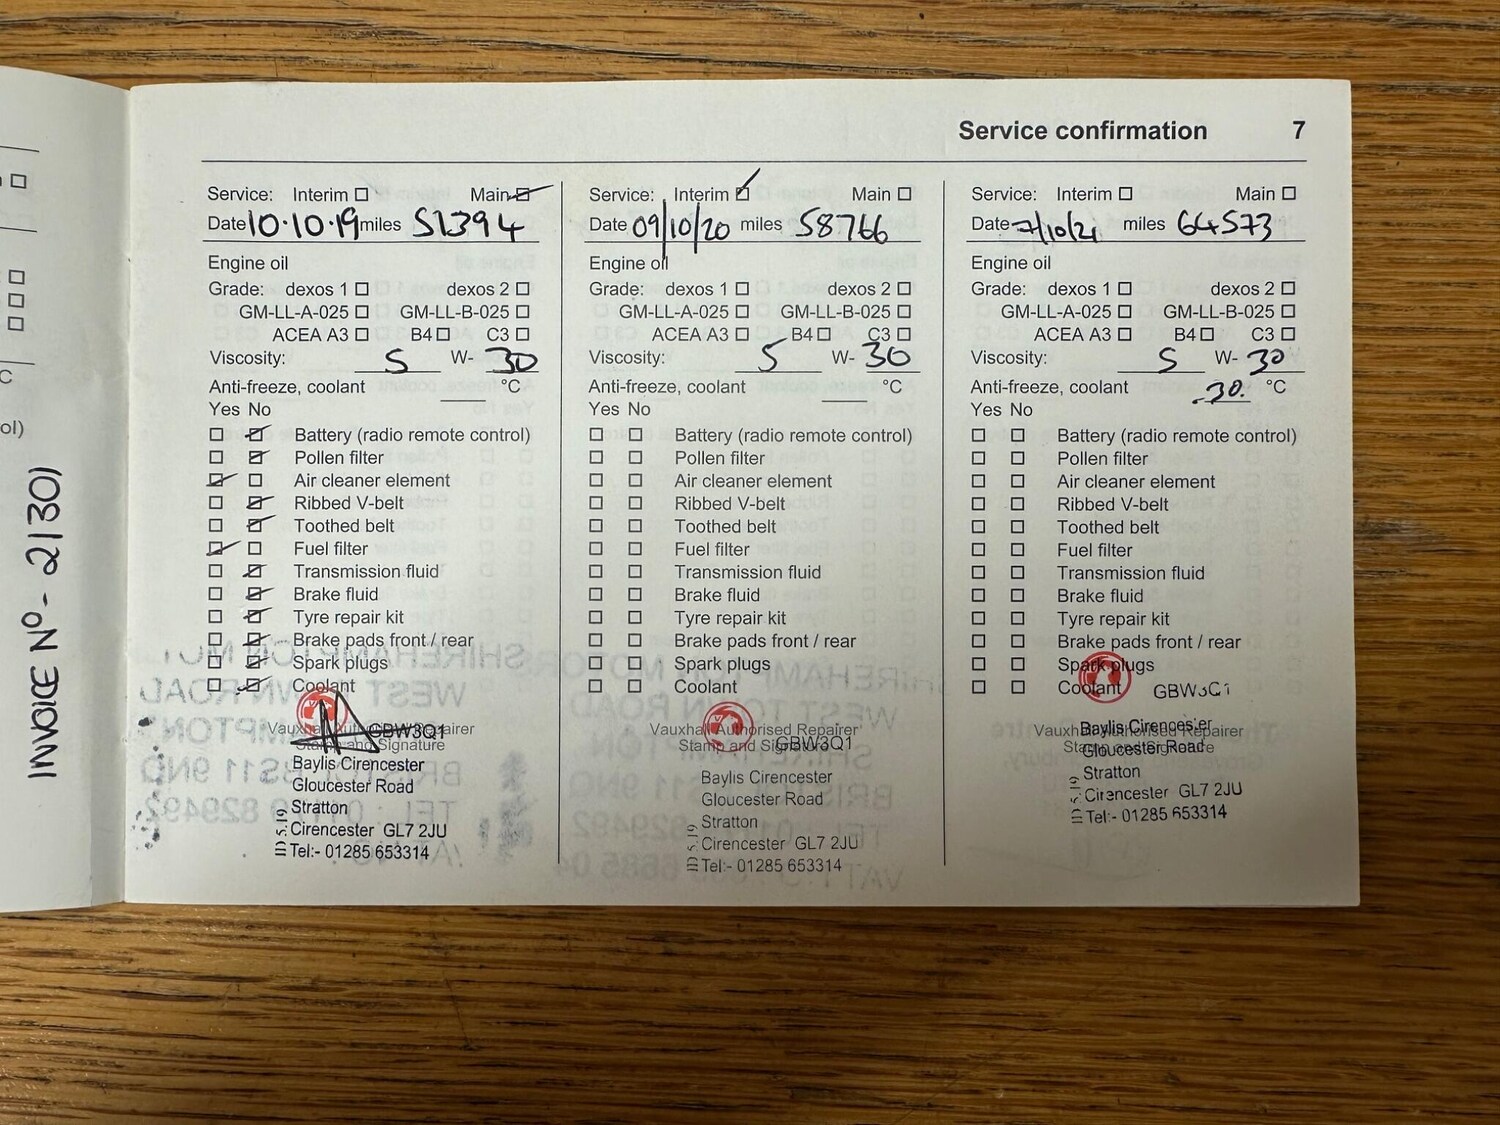 Service confirmation 7
Service: Interim Main
Date 10.10.19 miles 51394
Engine oil
Grade: dexos 1 dexos 2
GM-LL-A-025 GM-LL-B-025
ACEA A3 B4 C3
Viscosity: 5 W- 30
Anti-freeze, coolant °C
Yes No
Battery (radio remote control)
Pollen filter
Air cleaner element
Ribbed V-belt
Toothed belt
Fuel filter
Transmission fluid
Brake fluid
Tyre repair kit
Brake pads front / rear
Spark plugs
Coolant
GBW3Q1
Vauxhall Authorised Repairer
Stamp and Signature
Baylis Cirencester
Gloucester Road
Stratton
Cirencester GL7 2JU
Tel:- 01285 653314
Service: Interim Main
Date 09/10/20 miles 58766
Engine oil
Grade: dexos 1 dexos 2
GM-LL-A-025 GM-LL-B-025
ACEA A3 B4 C3
Viscosity: 5 W- 30
Anti-freeze, coolant °C
Yes No
Battery (radio remote control)
Pollen filter
Air cleaner element
Ribbed V-belt
Toothed belt
Fuel filter
Transmission fluid
Brake fluid
Tyre repair kit
Brake pads front / rear
Spark plugs
Coolant
Vauxhall Authorised Repairer
Stamp and Signature
GBW3Q1
Baylis Cirencester
Gloucester Road
Stratton
Cirencester GL7 2JU
Tel:- 01285 653314
Service: Interim Main
Date 7/10/21 miles 64573
Engine oil
Grade: dexos 1 dexos 2
GM-LL-A-025 GM-LL-B-025
ACEA A3 B4 C3
Viscosity: 5 W- 30
Anti-freeze, coolant -30. °C
Yes No
Battery (radio remote control)
Pollen filter
Air cleaner element
Ribbed V-belt
Toothed belt
Fuel filter
Transmission fluid
Brake fluid
Tyre repair kit
Brake pads front / rear
Spark plugs
Coolant
GBW3Q1
Vauxhall Authorised Repairer
Stamp and Signature
Baylis Cirencester
Gloucester Road
Stratton
Cirencester GL7 2JU
Tel:- 01285 653314
INVOICE Nº - 21301